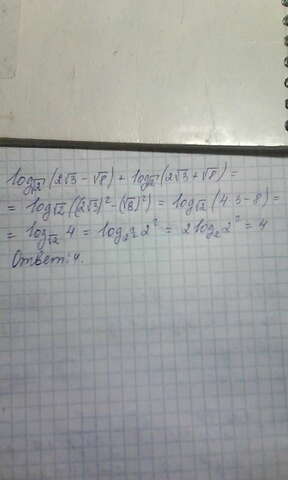 log√2 (2√3 - √8) + log√2 (2√3 + √8) =
= log√2 ((2√3)² - (√8)²) = log√2 (4·3 - 8) =
= log√2 4 = log 2^½ 2² = 2 log₂ 2² = 4
Ответ: 4.